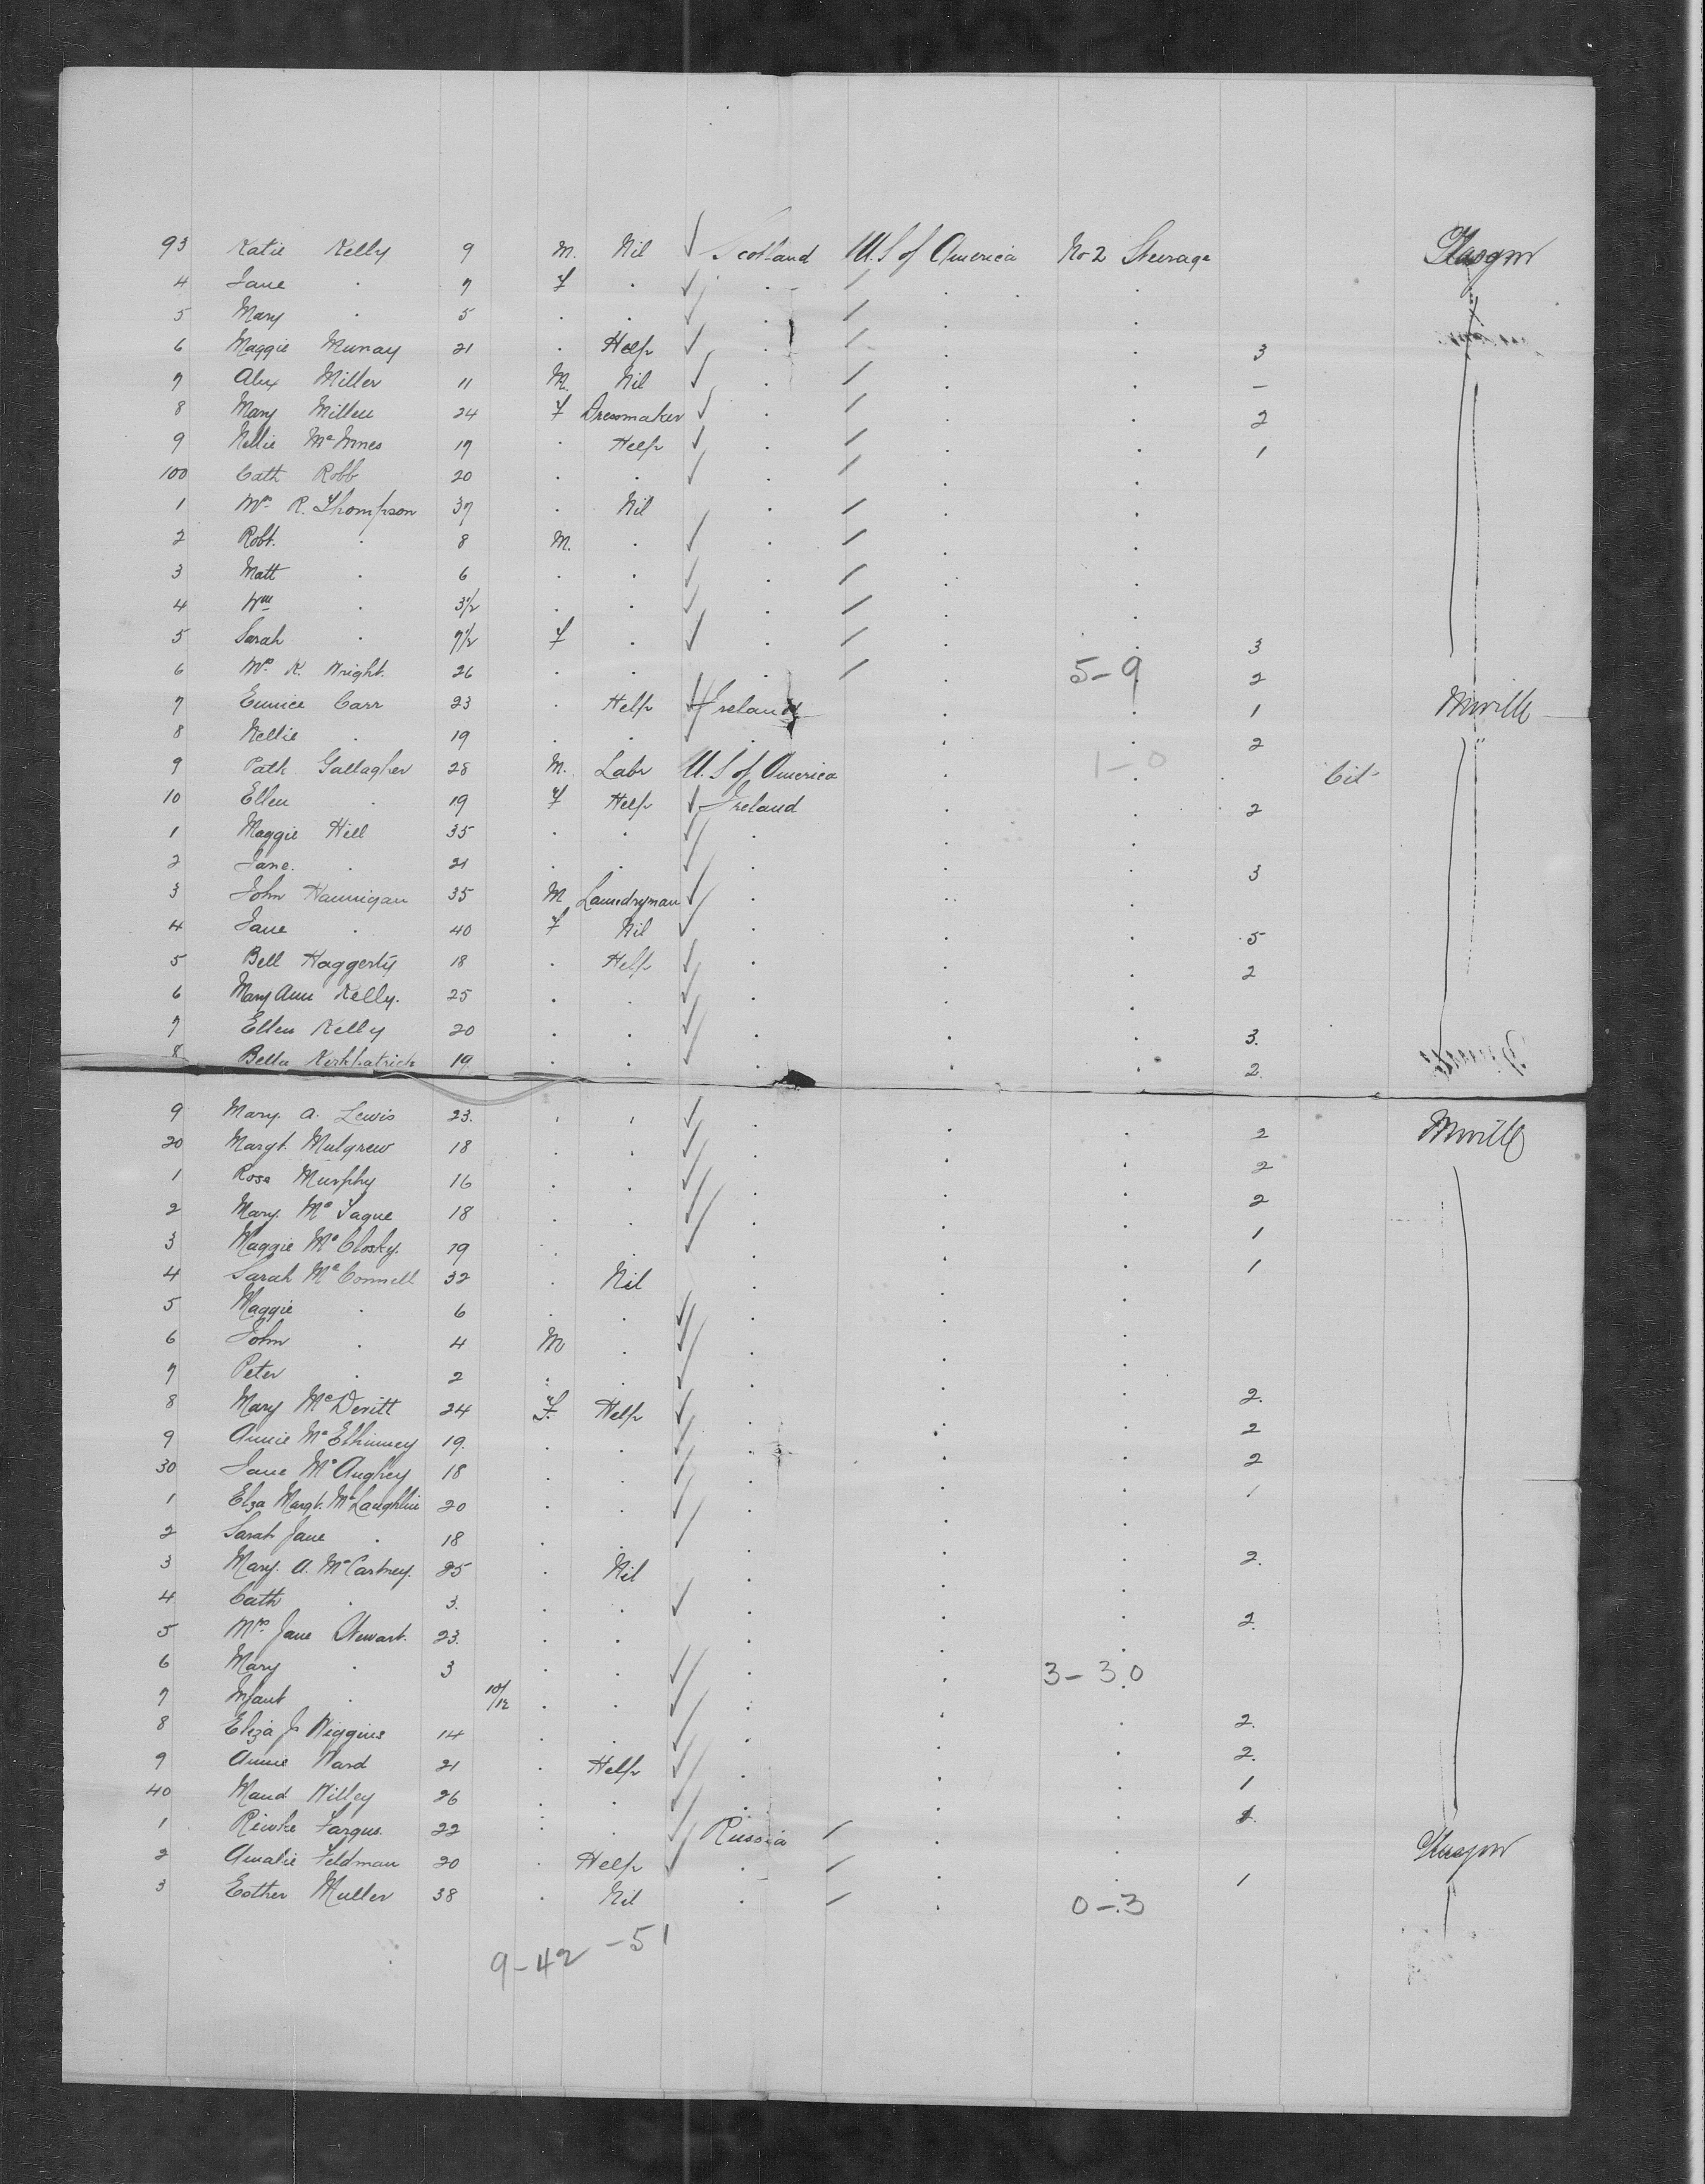 93 Katie Kelly 9 M. Nil Scotland U.S of America No 2 Steerage Glasgow
4 Jane . 7 F . . . .
5 Mary . 5 . . . . .
6 Maggie Murray 21 . Help . . . 3
7 Alex Miller 11 M. Nil . . . –
8 Mary Miller 24 F Dressmaker . . . 2
9 Nellie McInnes 17 . Help . . . 1
100 Cath Robb 20 . . . . .
1 Mrs R. Thompson 37 . Nil . . .
2 Robt. . 8 M. . . . .
3 Matt . 6 . . . . .
4 Wm . 3½ . . . . .
5 Sarah . 7½ F . . . . 3
6 Mrs K. Wright. 26 . . . . 5–9 2
7 Eunice Carr 23 . Help Ireland . . 1 Moville
8 Nellie . 19 . . . . . 2
9 Path Gallagher 28 M. Labr U.S of America . 1–0 . Cit
10 Ellen . 19 F Help Ireland . . 2
1 Maggie Hill 35 . . . . .
2 Jane. . 21 . . . . . 3
3 John Hannigan 35 M Laundryman . . .
4 Jane . 40 F Nil . . . 5
5 Bell Haggerty 18 . Help . . . 2
6 Mary Ann Kelly. 25 . . . . .
7 Ellen Kelly 20 . . . . . 3.
8 Bella Kirkpatrick 19 . . . . . 2.
9 Mary. A. Lewis 23. . . . . . 2 Moville
20 Margt. Mulgrew 18 . . . . . 2
1 Rose Murphy 16 . . . . . 2
2 Mary. McTague 18 . . . . . 1
3 Maggie McClosky. 19 . . . . . 1
4 Sarah McConnell 32 . Nil . . .
5 Maggie . 6 . . . . .
6 John . 4 M . . . .
7 Peter . 2 . . . . . 2.
8 Mary McDevitt 24 F. Help . . . 2
9 Annie McElhinney 19. . . . . . 2
30 Jane McAughey 18 . . . . . 1
1 Elza Margt. McLaughlin 20 . . . . .
2 Sarah Jane . 18 . . . . . 2.
3 Mary. A. McCartney. 25 . Nil . . .
4 Cath . 3. . . . . . 2.
5 Mrs Jane Stewart. 23. . . . . .
6 Mary . 3 . . . . 3–30
7 Infant . 10/12 . . . . . 2.
8 Eliza J. Wiggins 14 . . . . . 2.
9 Annie Ward 21 . Help . . . 1
40 Maud Willey 26 . . . . .
1 Fargus. 22 . . Russia . . Glasgow
2 Amalie Feldman 20 . Help . . . 1
3 Esther Muller 38 . Nil . . 0–3
9–42–51